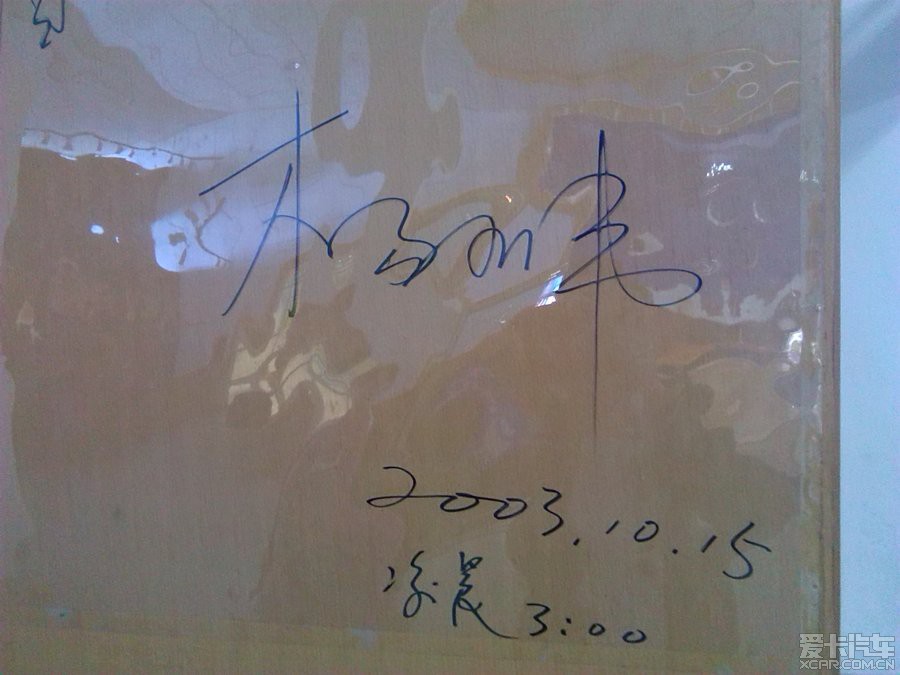 杨利伟
2003.10.15
凌晨 3:00
爱卡汽车
XCAR.COM.CN